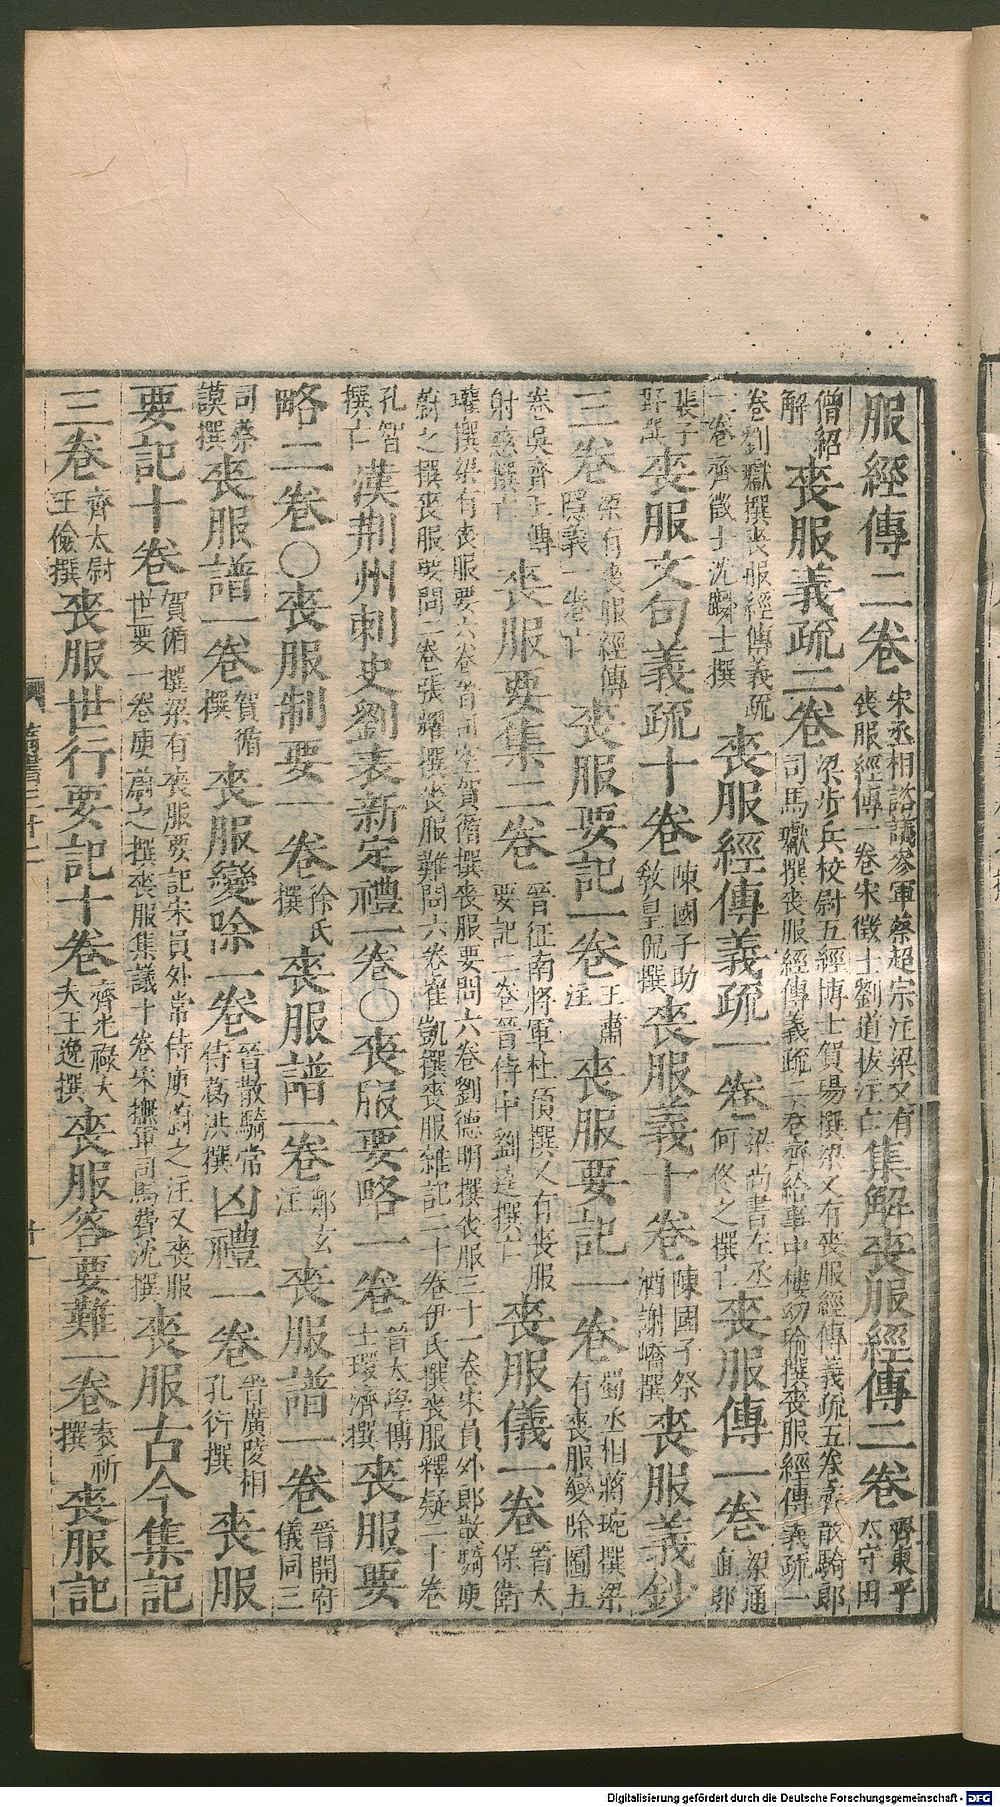 服經傳二卷宋丞相諮議參軍蔡超宗注梁又有喪服經傳一卷宋徵士劉道拔注亡集解喪服經傳二卷齊東平太守田
僧紹解喪服義疏二卷梁步兵校尉五經博士賀瑒撰梁又有喪服經傳義疏五卷齊散騎郎司馬瓛撰喪服經傳義疏二卷齊給事中樓幼瑜撰喪服經傳義疏一
卷劉瓛撰喪服經傳義疏一卷齊徵士沈麟士撰喪服經傳義疏一卷梁尚書左丞何佟之撰亡喪服傳一卷梁通直郎
裴子野撰喪服文句義疏十卷陳國子助教皇侃撰喪服義十卷陳國子祭酒謝嶠撰喪服義鈔
三卷梁有喪服經傳隱義一卷亡喪服要記一卷王肅注喪服要記一卷蜀丞相蔣琬撰梁有喪服變除圖五
卷吳齊王傅射慈撰亡喪服要集二卷晉征南將軍杜預撰又有喪服要記二卷晉侍中劉逵撰亡喪服儀一卷晉太保衛
瓘撰梁有喪服要六卷晉司空賀循撰喪服要問六卷劉德明撰喪服三十一卷宋員外郎散騎庾蔚之撰喪服要問二卷張耀撰喪服難問六卷崔凱撰喪服雜記二十卷伊氏撰喪服釋疑二十卷
孔智撰亡漢荊州刺史劉表新定禮一卷〇喪服要略一卷晉太學博士環濟撰喪服要
略二卷〇喪服制要一卷徐氏撰喪服譜一卷鄭玄注喪服譜一卷晉開府儀同三
司蔡謨撰喪服譜一卷賀循撰喪服變除一卷晉散騎常侍葛洪撰凶禮一卷晉廣陵相孔衍撰喪服
要記十卷賀循撰梁有喪服要記宋員外常侍庾蔚之注又喪服世要一卷庾蔚之撰喪服集議十卷宋撫軍司馬費沈撰喪服古今集記
三卷齊太尉王儉撰喪服世行要記十卷齊光祿大夫王逸撰喪服答要難一卷袁祈撰喪服記
Digitalisierung gefördert durch die Deutsche Forschungsgemeinschaft - DFG